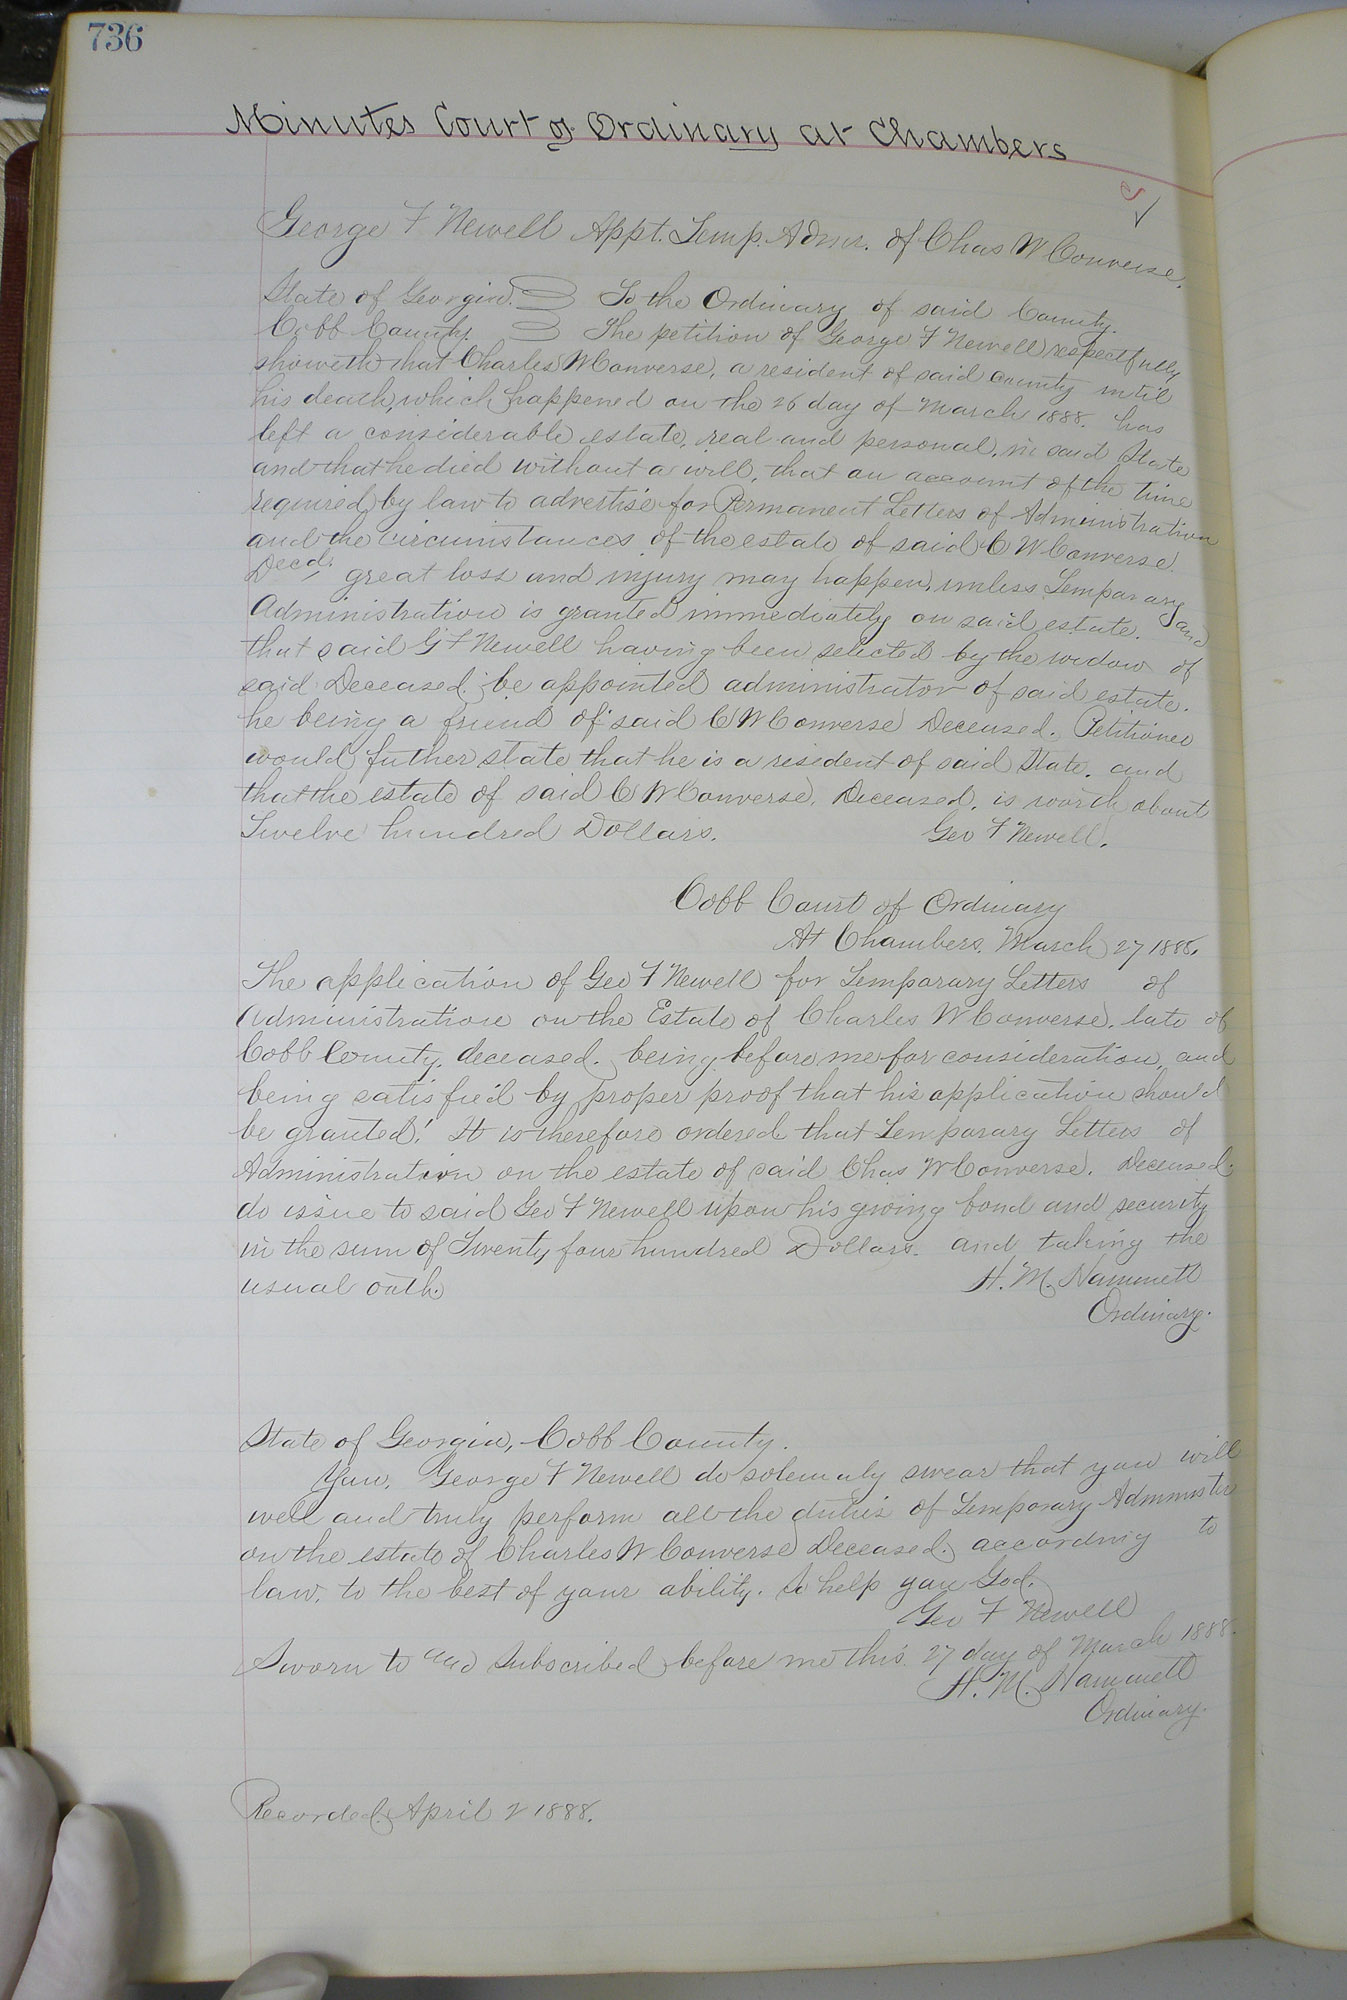 736
Minutes Court of Ordinary at Chambers
George F Newell Appt. Temp. Admr. of Chas W Converse.
State of Georgia. To the Ordinary of said County.
Cobb County. The petition of George F Newell respectfully
showeth that Charles W Converse, a resident of said county until
his death, which happened on the 26 day of March 1888. has
left a considerable estate, real and personal, in said State
and that he died without a will, that on account of the time
required by law to advertise for Permanent Letters of Administration
and the circumstances of the estate of said C W Converse.
Decd. great loss and injury may happen, unless Temparary
Administration is granted immediately on said estate. and
that said G F Newell having been selected by the widow of
said Deceased. be appointed administrator of said estate.
he being a friend of said C W Converse Deceased. Petitioner
would futher state that he is a resident of said State. and
that the estate of said C W Converse, Deceased, is worth about
Twelve hundred Dollars. Geo F Newell.
Cobb Court of Ordinary
At Chambers, March 27 1888.
The application of Geo F Newell for Temparary Letters of
Administration on the Estate of Charles W Converse. late of
Cobb County, deceased. being before me for consideration, and
being satisfied by proper proof that his application should
be granted! It is therefore ordered that Temparary Letters of
Administration on the estate of said Chas W Converse. Deceased.
do issue to said Geo F Newell upon his giving bond and security
in the sum of Twenty four hundred Dollars. and taking the
usual oath. H. M. Hammett
Ordinary.
State of Georgia, Cobb County.
You, George F Newell do solemnly swear that you will
well and truly perform all the duties of Temporary Administer
on the estate of Charles W Converse Deceased. according to
law, to the best of your ability. So help you God.
Geo F Newell
Sworn to and Subscribed before me this 27 day of March 1888.
H. M. Hammett
Ordinary.
Recorded April 2 1888.